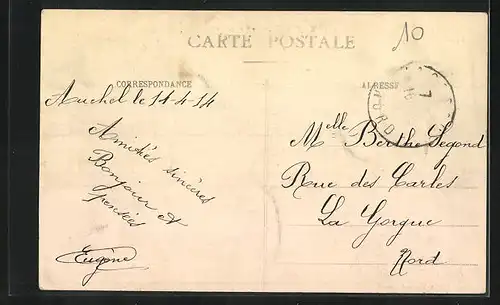 10
CARTE POSTALE
CORRESPONDANCE
ADRESSE
Auchel le 11-4-14
Amitiés sincères
Bonjour et
pensées
Eugène
Melle Berthe Segond
Rue des Carles
La Gorgue
Nord